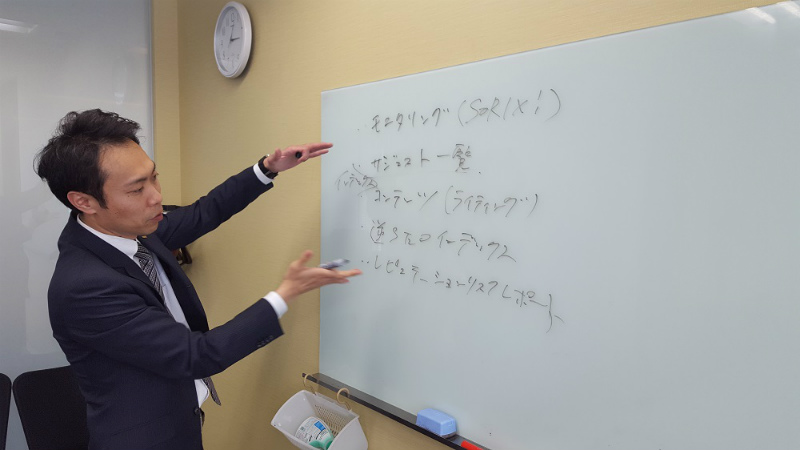 ・モニタリング(SORIXi)
・サジェスト一覧.
インデックス
コンテンツ(ライティング)
・逆SEOインデックス
・レピュテーションリスクレポート